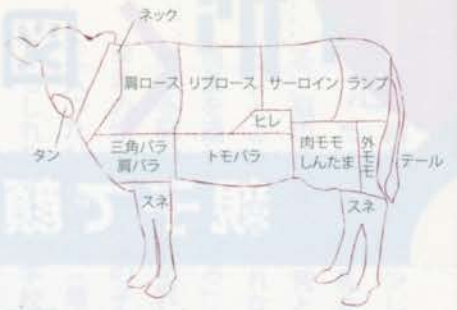 ネック
肩ロース
リブロース
サーロイン
ランプ
ヒレ
タン
三角バラ
肩バラ
トモバラ
肉モモ
しんたま
外モモ
テール
スネ
スネ